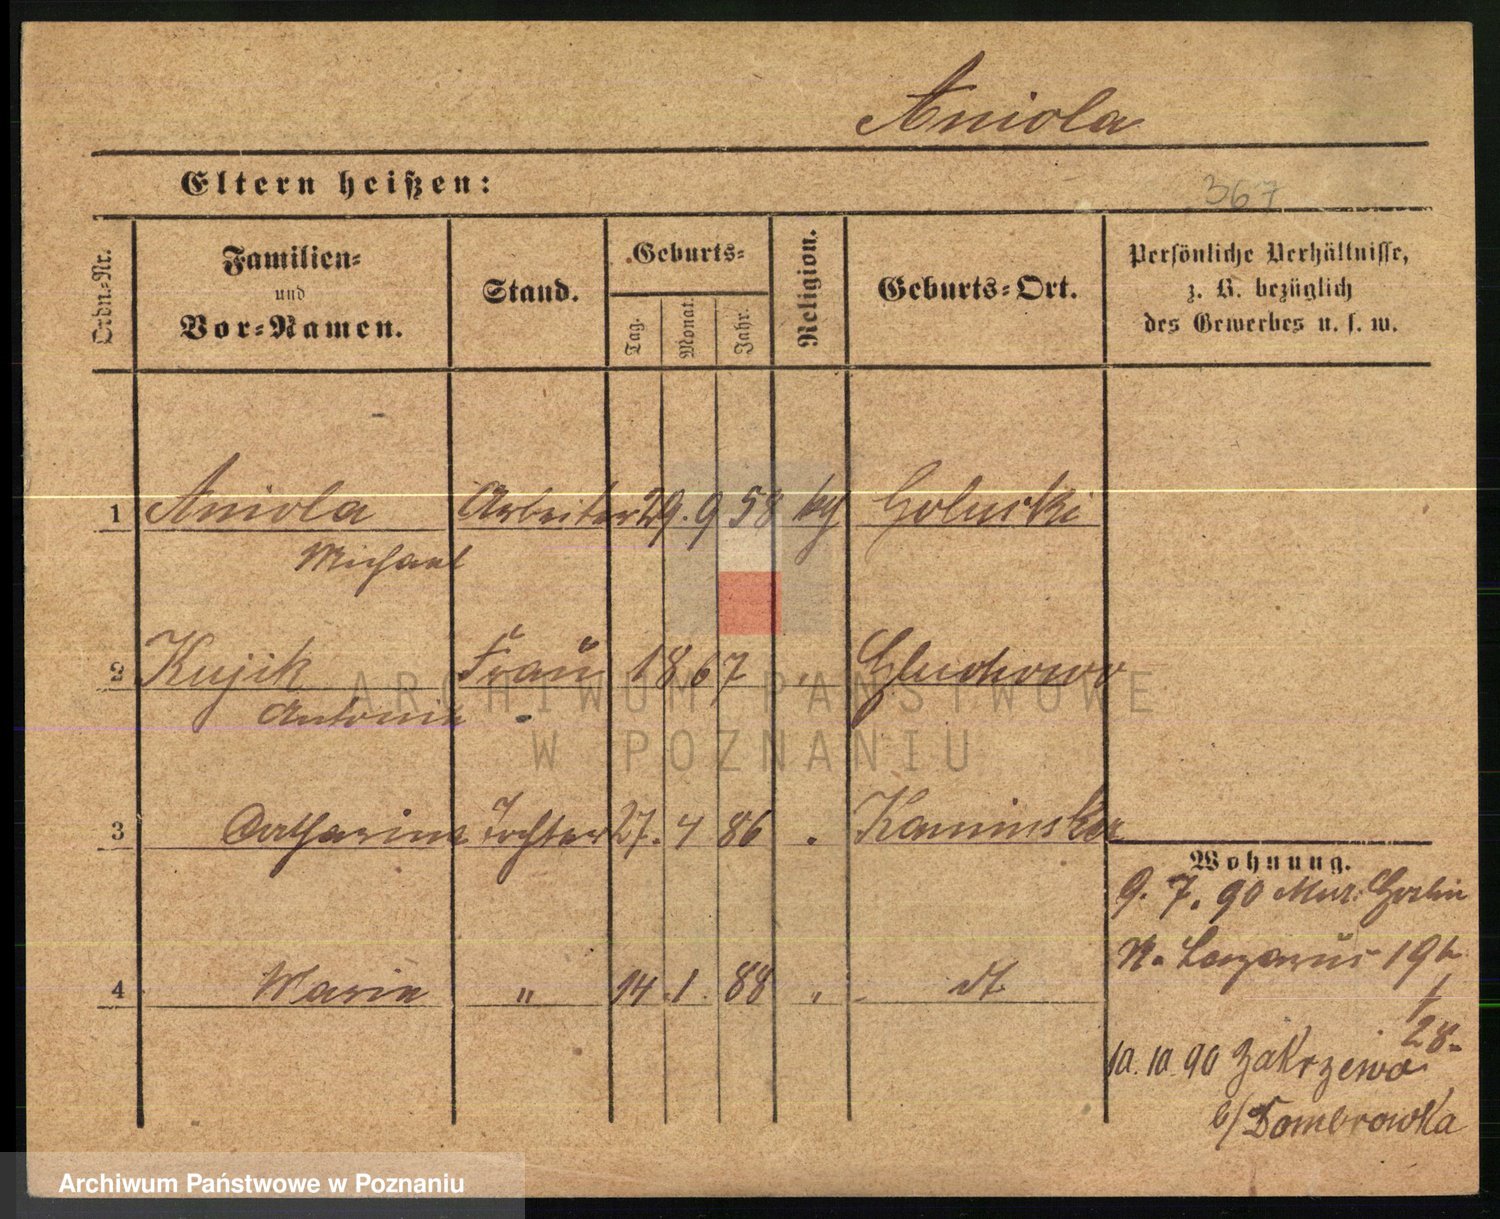 Aniola
Eltern heißen:
367
Ordn.-Nr.
Familien-
und
Vor-Namen.
Stand.
Geburts-
Tag.
Monat.
Jahr.
Religion.
Geburts-Ort.
Persönliche Verhältnisse,
z. B. bezüglich
des Gewerbes u. s. w.
1 Aniola Arbeiter 29. 9 58 Goluski
Michael
2 Kujik Frau 1867 " Gluchowo
Antonie
3 Catharina Tochter 27. 4 86 " Kaminsker
4 Marie " 14. 1. 88 " dt.
Wohnung.
9. 7. 90 Mur. Goslin
N. Lazarus 19b
/28.
10. 10. 90 Zakrzewo
b/Dombrowka
ARCHIWUM PAŃSTWOWE
W POZNANIU
Archiwum Państwowe w Poznaniu